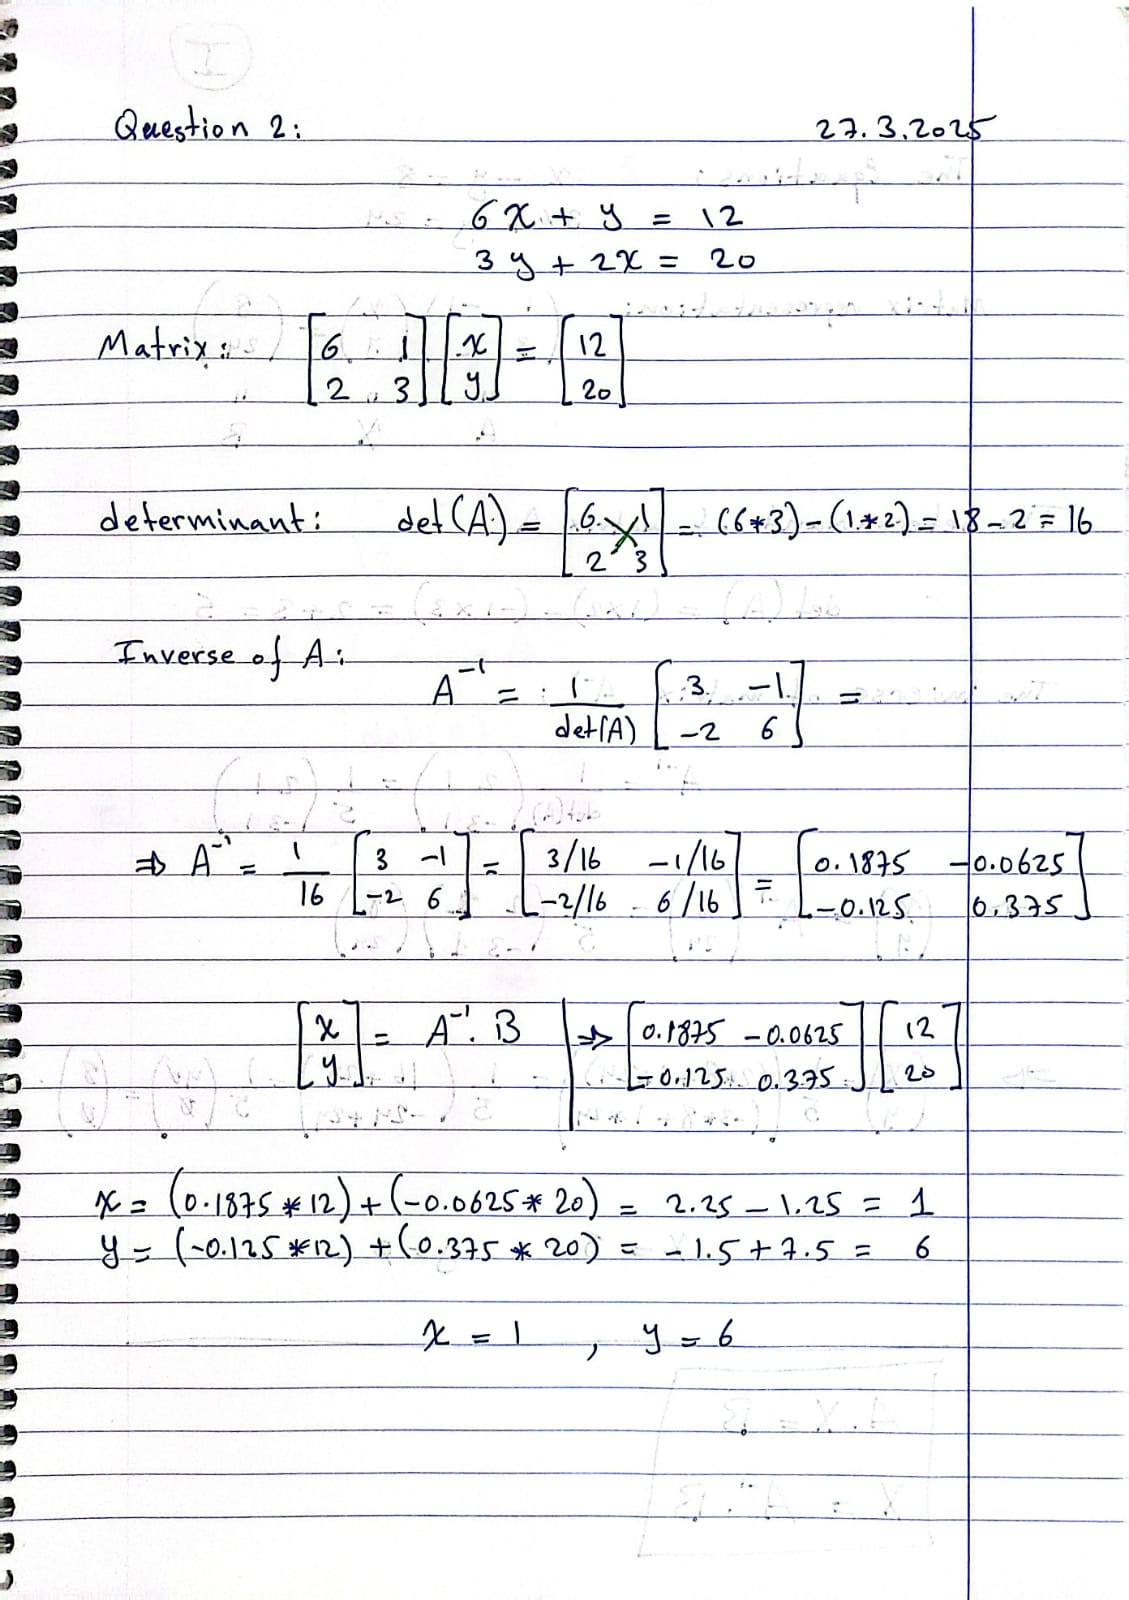 Question 2: 27.3.2025
6x + y = 12
3y + 2x = 20
Matrix: [6 1; 2 3] [x; y] = [12; 20]
determinant: det(A) = [6 1; 2 3] = (6*3) - (1*2) = 18 - 2 = 16
Inverse of A:
A⁻¹ = 1/det(A) [3 -1; -2 6] =
⇒ A⁻¹ = 1/16 [3 -1; -2 6] = [3/16 -1/16; -2/16 6/16] = [0.1875 -0.0625; -0.125 0.375]
[x; y] = A⁻¹. B | ⇒ [0.1875 -0.0625; -0.125 0.375] [12; 20]
x = (0.1875 * 12) + (-0.0625 * 20) = 2.25 - 1.25 = 1
y = (-0.125 * 12) + (0.375 * 20) = -1.5 + 7.5 = 6
x = 1 , y = 6